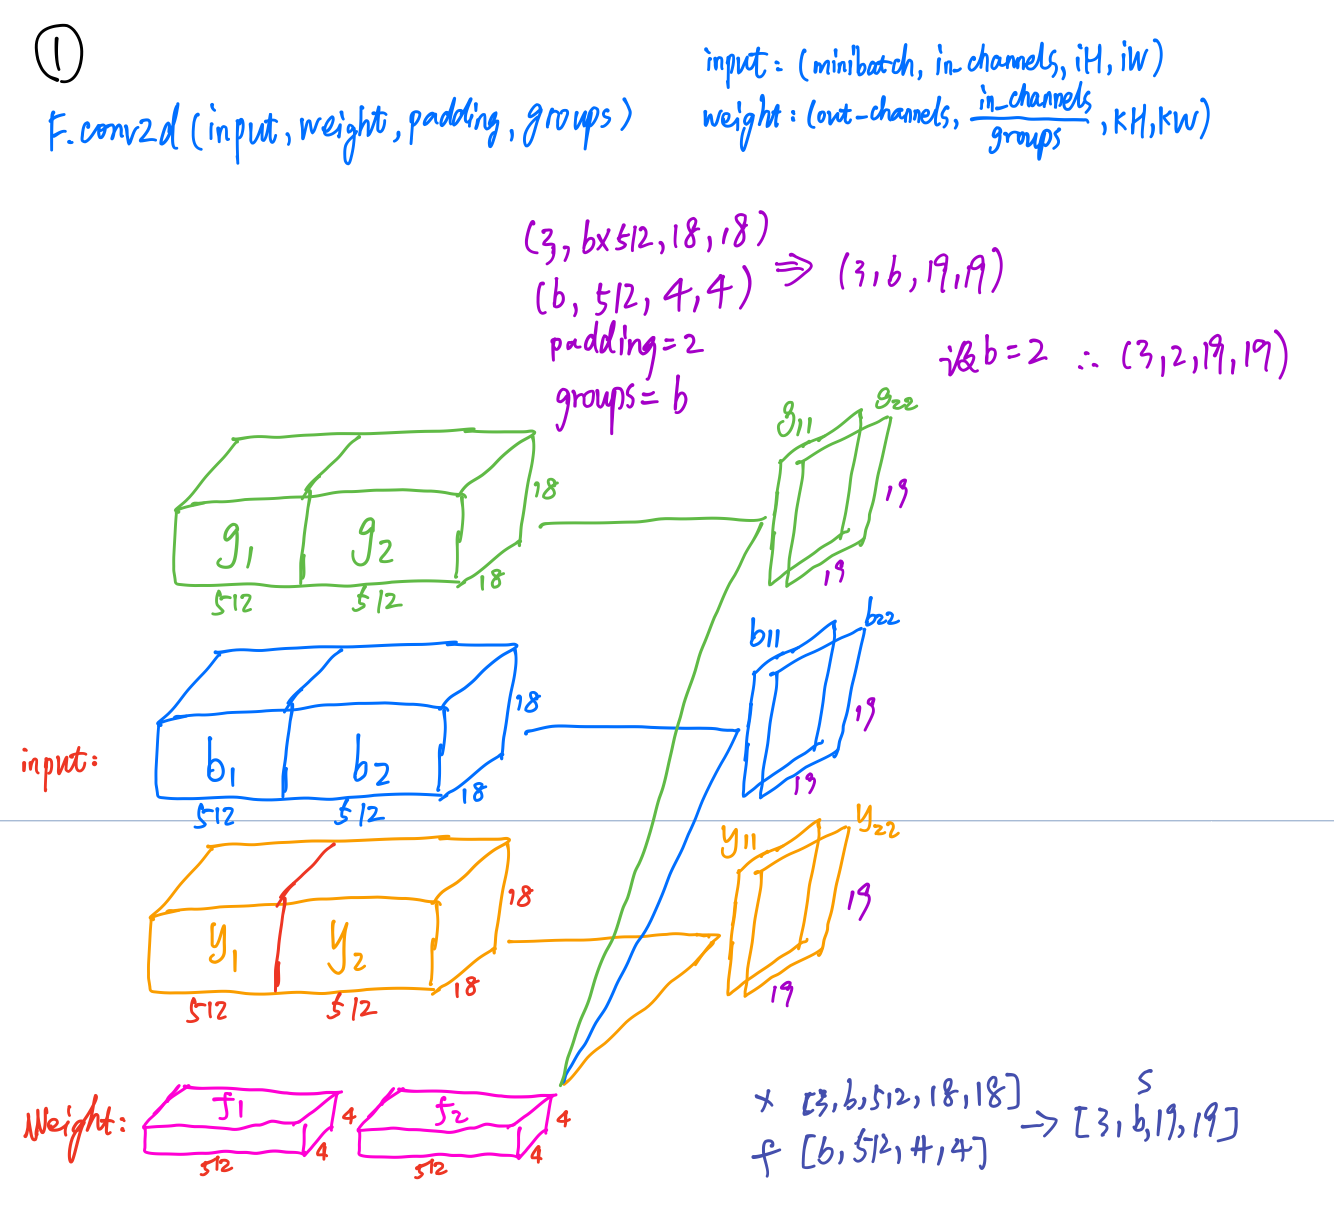 ①
F.conv2d(input, weight, padding, groups)
input: (minibatch, in_channels, iH, iW)
weight: (out-channels, in_channels/groups, kH, kW)
(3, b×512, 18, 18)
(b, 512, 4, 4) ⇒ (3, b, 19, 19)
padding=2
groups=b
设b=2 ∴ (3,2,19,19)
g11 g22
g1 g2
18
19
512 512 18
19
b11 b22
b1 b2
18
19
512 512 18
19
input:
y11 y22
y1 y2
18
19
512 512 18
19
Weight:
f1 4 f2 4
512 4 512 4
x [3,b,512,18,18]
f [b,512,4,4]
→ s [3,b,19,19]